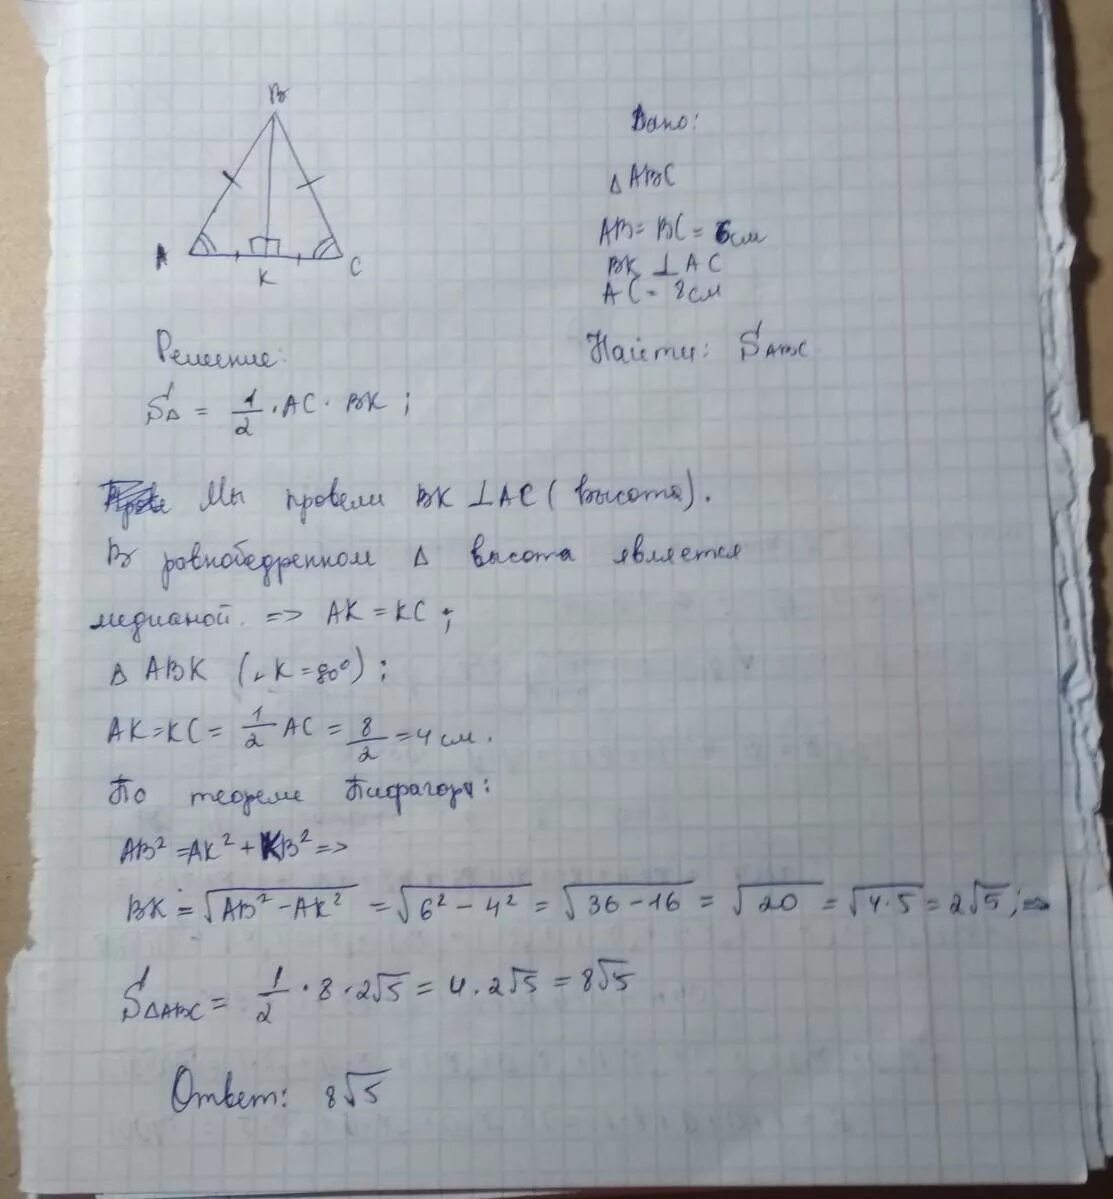 B
A
K
C
Дано:
△ ABC
AB = BC = 6см
BK ⊥ AC
AC = 8см
Найти: S ABC
Решение:
S△ = 1/2 · AC · BK ;
Мы провели BK ⊥ AC ( высота ).
В равнобедренном △ высота является
медианой. => AK = KC ;
△ ABK (∠K = 90°) ;
AK = KC = 1/2 AC = 8/2 = 4 см.
По теореме Пифагора:
AB² = AK² + KB² =>
BK = √(AB² - AK²) = √(6² - 4²) = √(36 - 16) = √20 = √(4·5) = 2√5 ; =>
S△ABC = 1/2 · 8 · 2√5 = 4 · 2√5 = 8√5
Ответ: 8√5